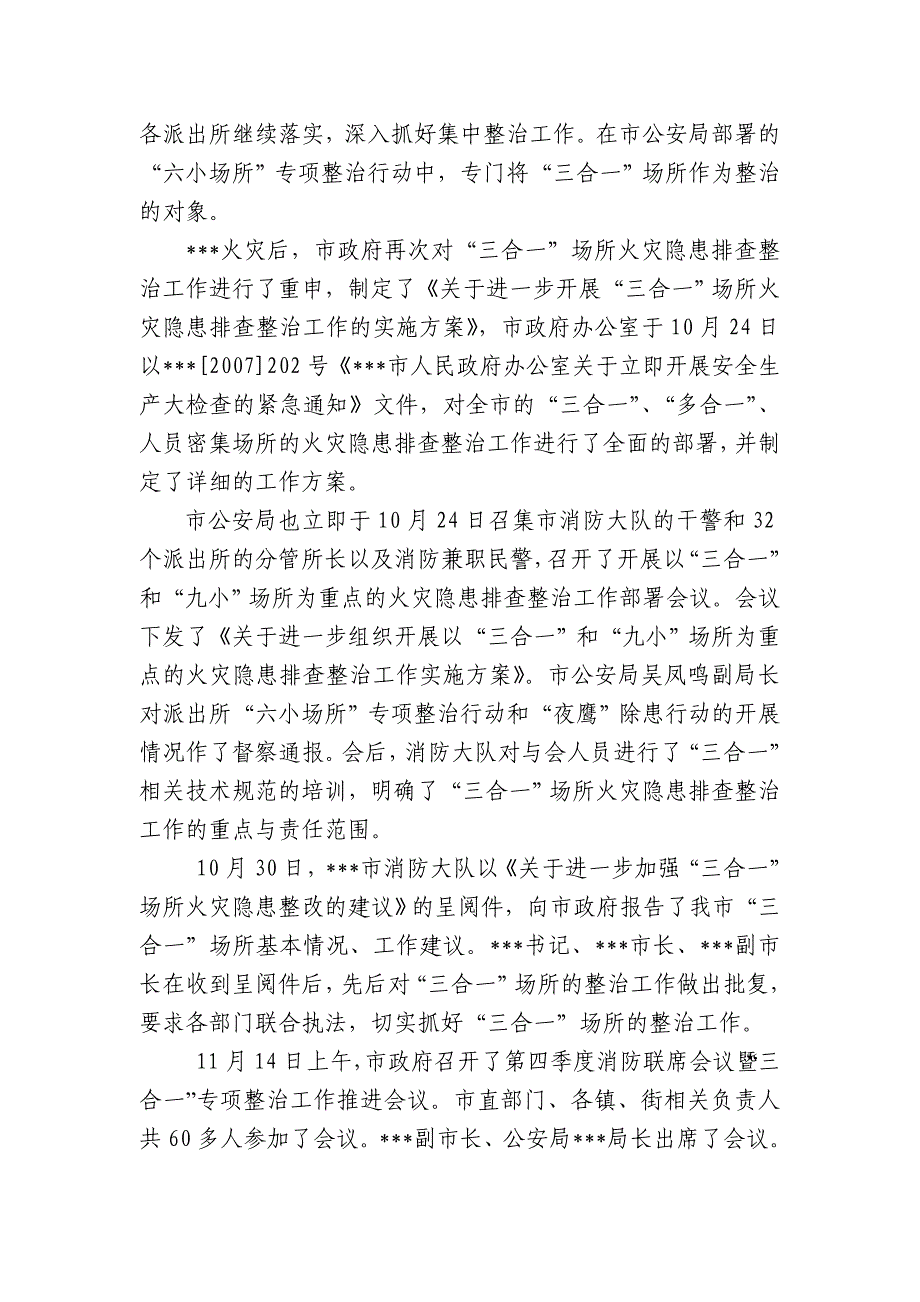 各派出所继续落实，深入抓好集中整治工作。在市公安局部署的
“六小场所”专项整治行动中，专门将“三合一”场所作为整治
的对象。
***火灾后，市政府再次对“三合一”场所火灾隐患排查整
治工作进行了重申，制定了《关于进一步开展“三合一”场所火
灾隐患排查整治工作的实施方案》，市政府办公室于 10 月 24 日
以***[2007]202 号《***市人民政府办公室关于立即开展安全生
产大检查的紧急通知》文件，对全市的“三合一”、“多合一”、
人员密集场所的火灾隐患排查整治工作进行了全面的部署，并制
定了详细的工作方案。
市公安局也立即于 10 月 24 日召集市消防大队的干警和 32
个派出所的分管所长以及消防兼职民警，召开了开展以“三合一”
和“九小”场所为重点的火灾隐患排查整治工作部署会议。会议
下发了《关于进一步组织开展以“三合一”和“九小”场所为重
点的火灾隐患排查整治工作实施方案》。市公安局吴凤鸣副局长
对派出所“六小场所”专项整治行动和“夜鹰”除患行动的开展
情况作了督察通报。会后，消防大队对与会人员进行了“三合一”
相关技术规范的培训，明确了“三合一”场所火灾隐患排查整治
工作的重点与责任范围。
10 月 30 日，***市消防大队以《关于进一步加强“三合一”
场所火灾隐患整改的建议》的呈阅件，向市政府报告了我市“三
合一”场所基本情况、工作建议。***书记、***市长、***副市
长在收到呈阅件后，先后对“三合一”场所的整治工作做出批复，
要求各部门联合执法，切实抓好“三合一”场所的整治工作。
11 月 14 日上午，市政府召开了第四季度消防联席会议暨三
合一”专项整治工作推进会议。市直部门、各镇、街相关负责人
共 60 多人参加了会议。***副市长、公安局***局长出席了会议。